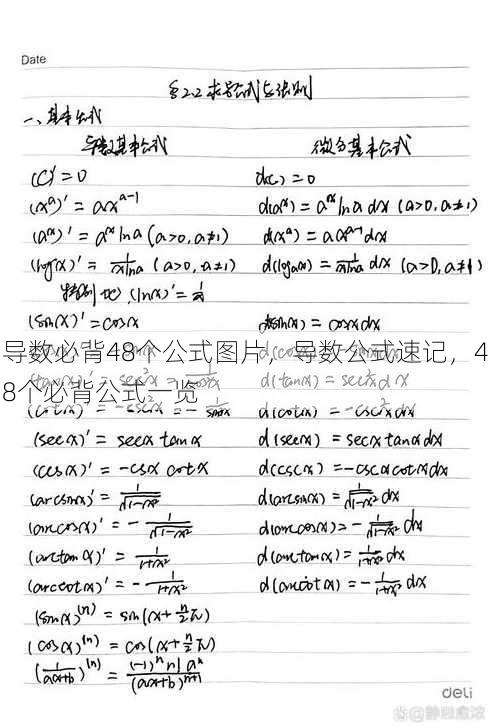 Date
§2.2 求导公式与法则
一、基本公式
导数基本公式 微分基本公式
(C)'=0 d(c)=0
(x^a)'=ax^{a-1} d(a^x)=a^x ln a dx (a>0,a≠1)
(a^x)'=a^x ln a (a>0,a≠1) d(x^a)=ax^{a-1}dx
(log_a x)'=\frac{1}{x ln a} (a>0,a≠1) d(log_a x)=\frac{1}{x ln a}dx (a>0,a≠1)
特别地,(ln x)'=\frac{1}{x}
(sin x)'=cos x d(sin x)=cos x dx
导数必背48个公式图片，导数公式速记，4
8个必背公式一览
d(tan x)=sec²x dx
d(cot x)=-csc²x dx
(sec x)'=sec x tan x d(sec x)=sec x tan x dx
(csc x)'=-csc x cot x d(csc x)=-csc x cot x dx
(arcsin x)'=\frac{1}{\sqrt{1-x²}} d(arcsin x)=\frac{1}{\sqrt{1-x²}}dx
(arccos x)'=-\frac{1}{\sqrt{1-x²}} d(arccos x)=-\frac{1}{\sqrt{1-x²}}dx
(arctan x)'=\frac{1}{1+x²} d(arctan x)=\frac{1}{1+x²}dx
(arccot x)'=-\frac{1}{1+x²} d(arccot x)=-\frac{1}{1+x²}dx
(sin x)^{(n)}=sin(x+\frac{n}{2}π)
(cos x)^{(n)}=cos(x+\frac{n}{2}π)
(\frac{1}{ax+b})^{(n)}=\frac{(-1)^n n! a^n}{(ax+b)^{n+1}}
deli